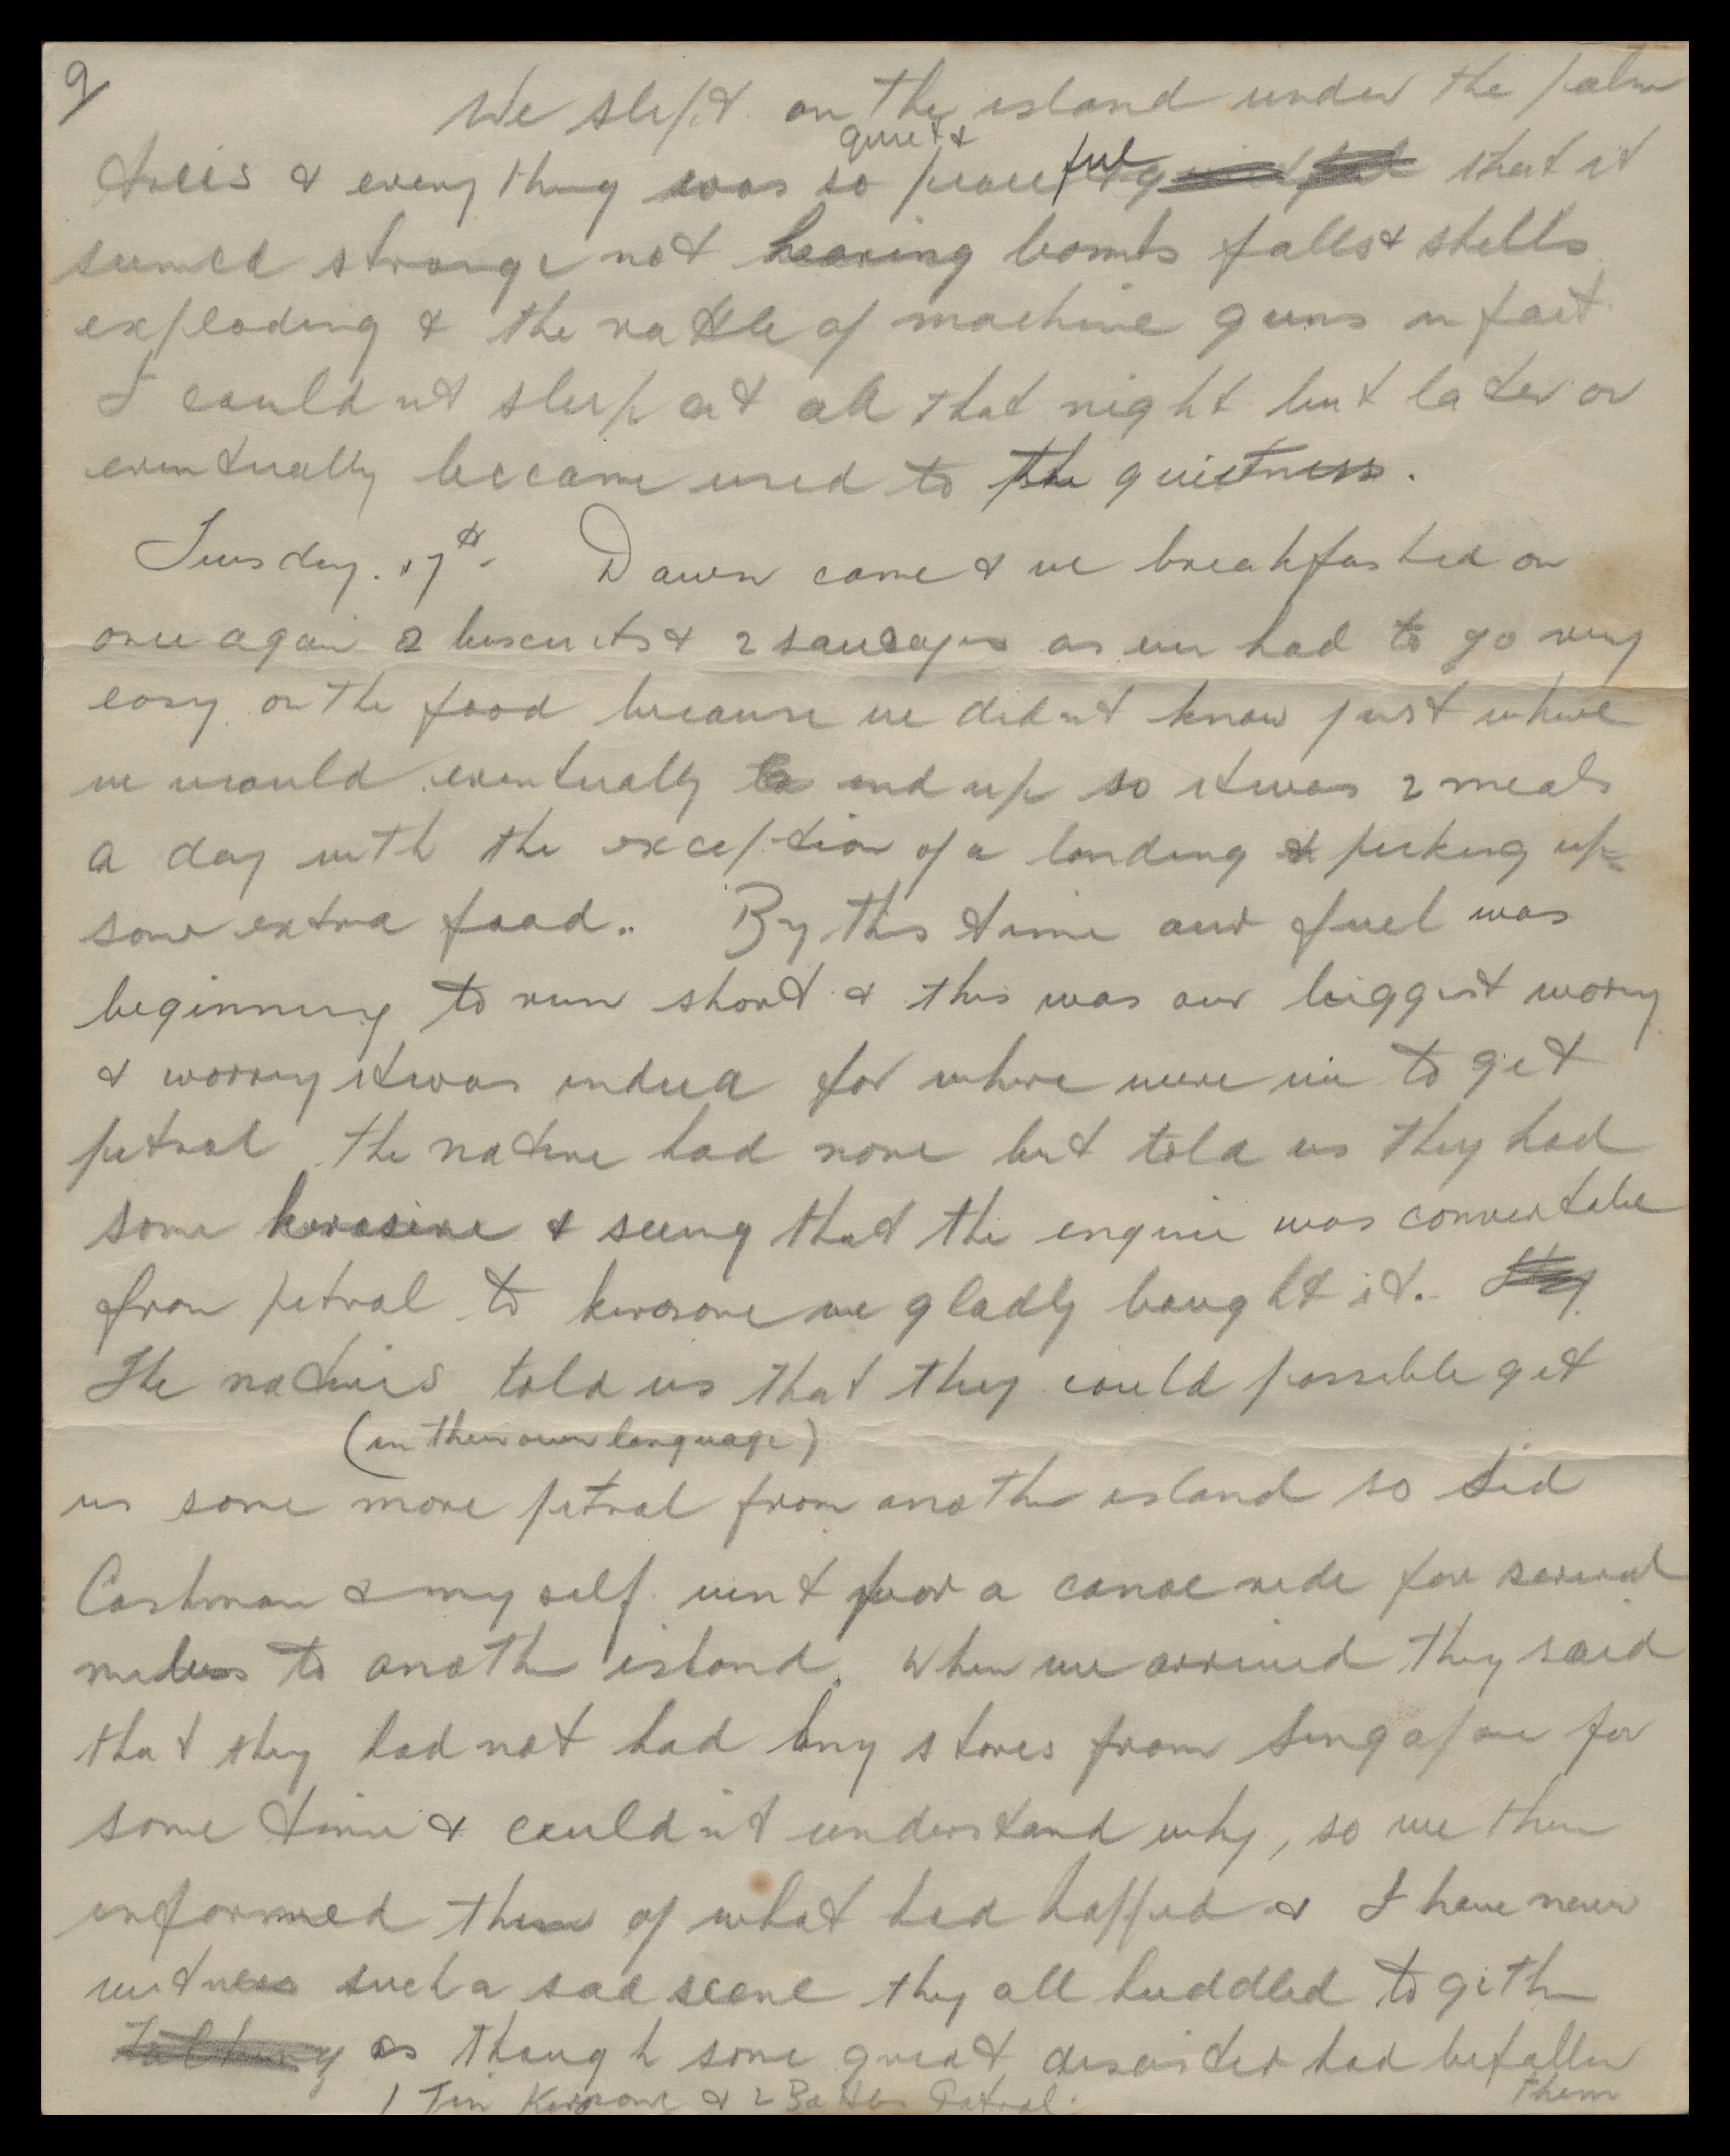 9
We slept on the island under the palm
quiet &
trees & everything was so peaceful that it
seemed strange not hearing bombs falls & shells
exploding & the rattle of machine guns in fact
I couldnt sleep at all that night but later on
eventually became used to the quietness.
Tuesday. 17th. Dawn came & we breakfasted on
once again 2 biscuits & 2 sausages as we had to go very
easy on the food because we didnt know just where
we would eventually end up so it was 2 meals
a day with the exception of a landing & picking up
some extra food.. By this time our fuel was
beginning to run short & this was our biggest worry
& worry it was indeed for where were we to get
petrol the native had none but told us they had
some kerosine & seeing that the engine was convertable
from petrol to kerosone we gladly bought it.
The natives told us that they could possible get
(in their own language)
us some more petrol from anoth island so Sid
Cashman & myself went for a canoe ride for several
miles to anoth island. When we arrived they said
that they had not had any stores from Singapore for
some time & couldn't understand why, so we then
informed them of what had happed & I have never
witness such a sad scene they all huddled togeth
talking as though some great desaster had befallen
them
1 Tin Kerosone & 2 Bottles Petrol.